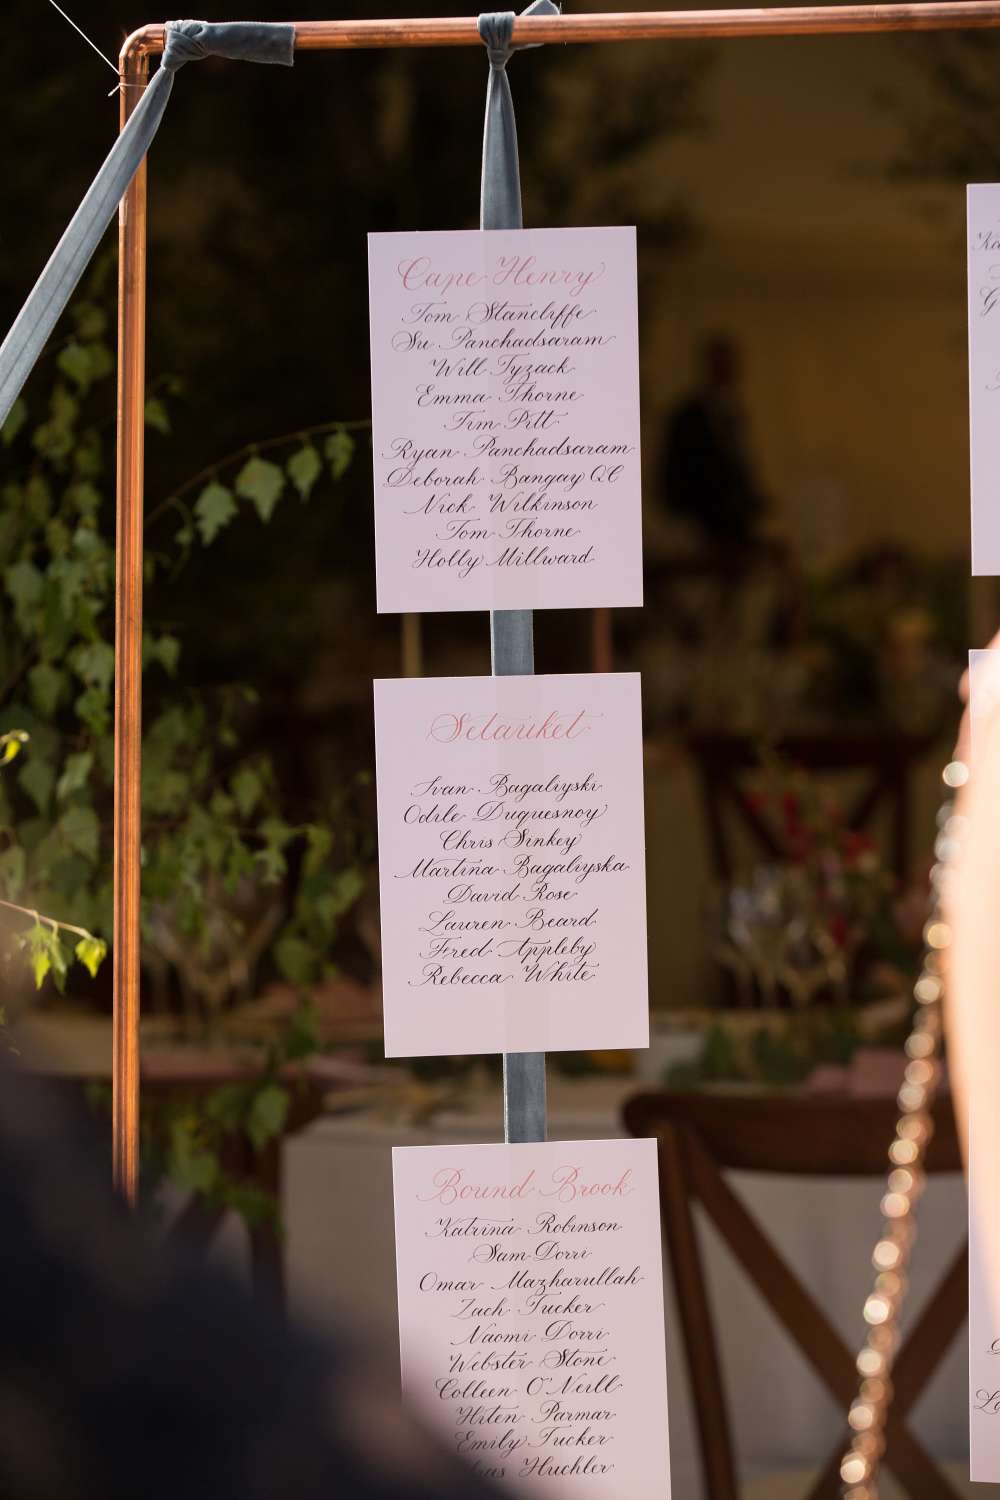 Cape Henry
Tom Stancliffe
Su Panchadsaram
Will Tyzack
Emma Thorne
Tim Pitt
Ryan Panchadsaram
Deborah Bangay QC
Nick Wilkinson
Tom Thorne
Holly Millward
Setauket
Ivan Bagaliyski
Odile Duquesnoy
Chris Sinkey
Martina Bagaliyska
David Rose
Lauren Beard
Fred Appleby
Rebecca White
Bound Brook
Katrina Robinson
Sam Dorri
Omar Mazharullah
Zach Tucker
Naomi Dorri
Webster Stone
Colleen O'Neill
Hiten Parmar
Emily Tucker
Huchler